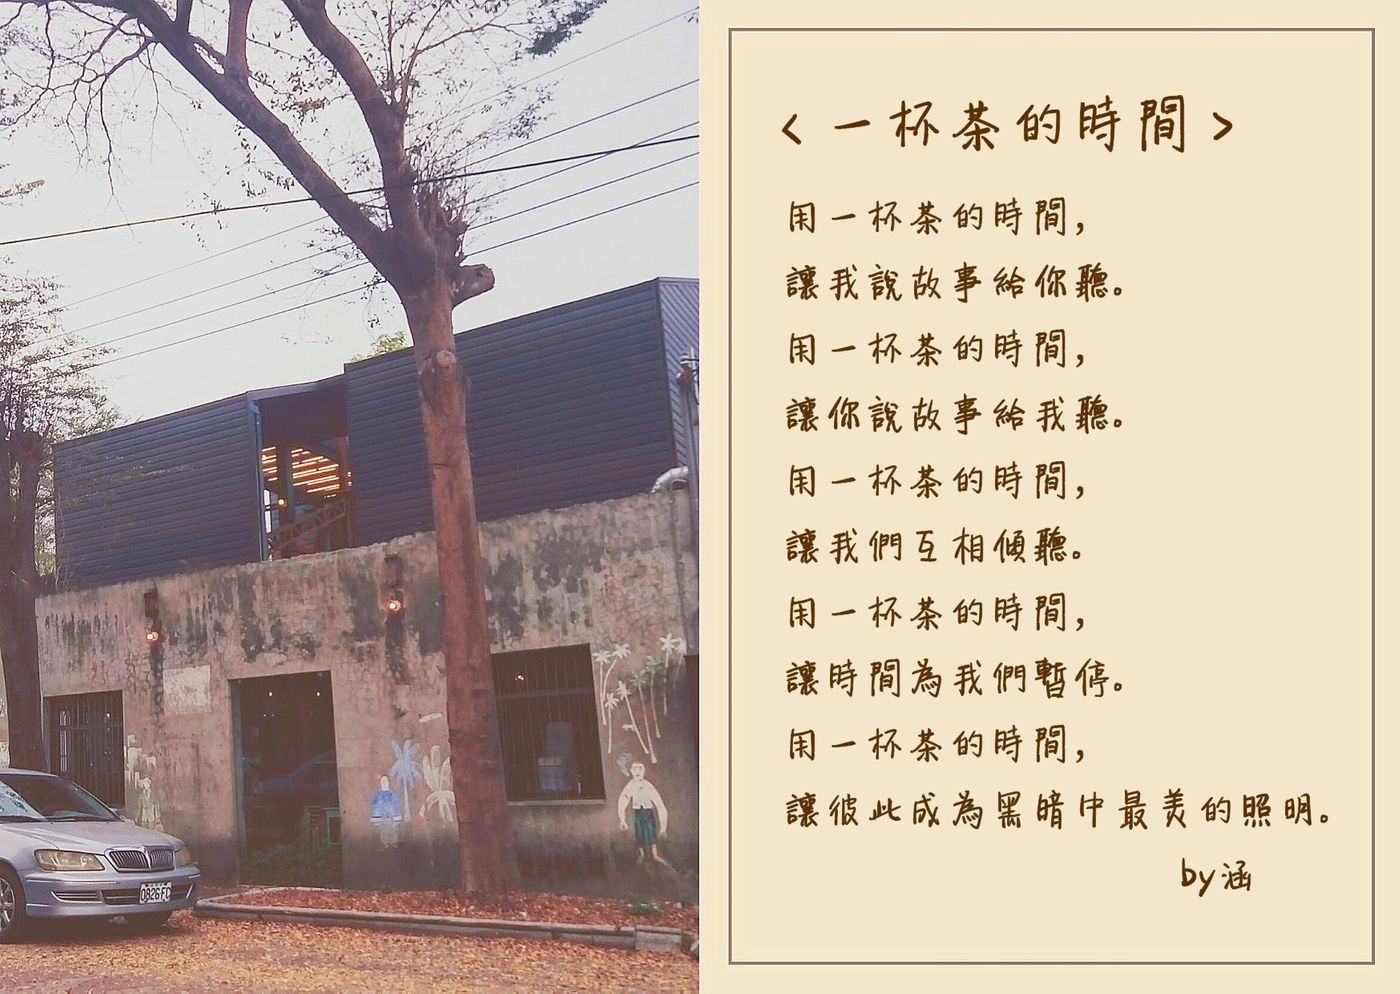 <一杯茶的時間>
用一杯茶的時間，
讓我說故事給你聽。
用一杯茶的時間，
讓你說故事給我聽。
用一杯茶的時間，
讓我們互相傾聽。
用一杯茶的時間，
讓時間為我們暫停。
用一杯茶的時間，
讓彼此成為黑暗中最美的照明。
by涵
0826FC